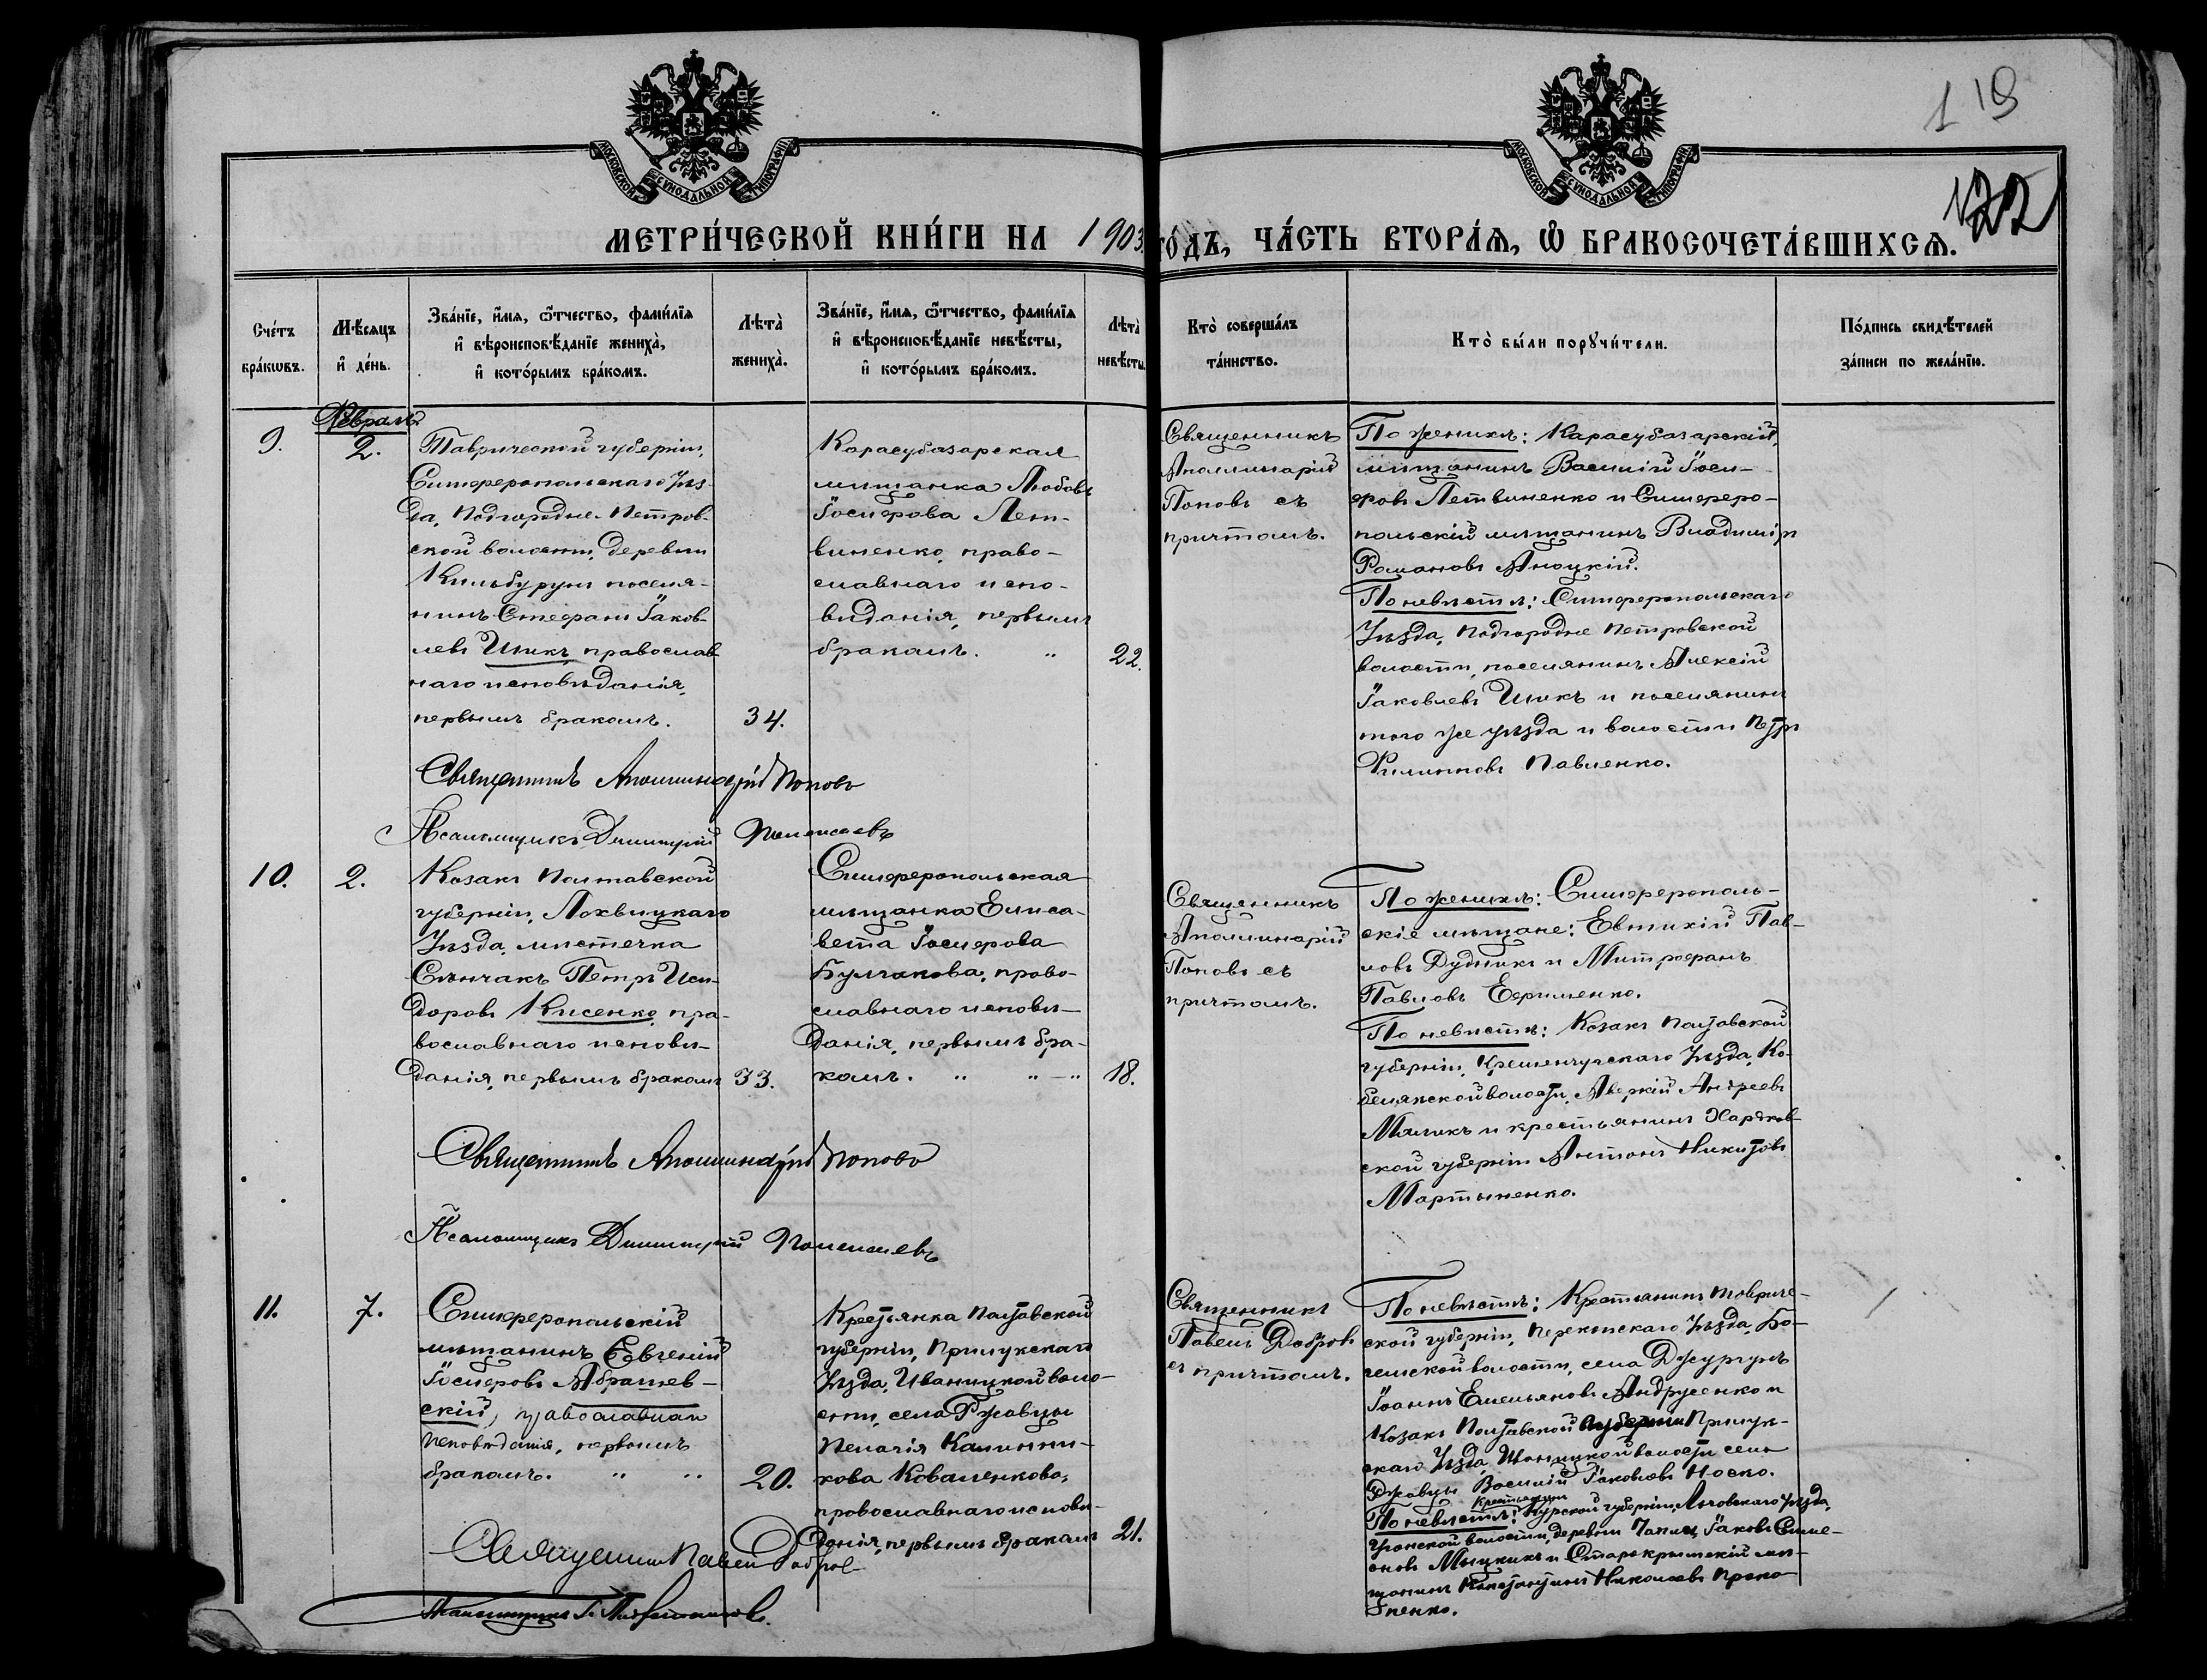 119
122
МОСКОВСКОЙ СѴНОДАЛЬНОЙ ТИПОГРАФІИ
МОСКОВСКОЙ СѴНОДАЛЬНОЙ ТИПОГРАФІИ
МЕТРИ́ЧЕСКОЙ КНИ́ГИ НА 1903 ГО́ДЪ, ЧА́СТЬ ВТОРА́Ѧ, Ѽ БРАКОСОЧЕТА́ВШИХСѦ.
Сче́тъ
бра́кѡвъ.
Мѣ́сяцъ
и҆ де́нь.
Зва́нїе, и҆́мѧ, ѻ҆́тчество, фами́лїѧ
и҆ вѣроисповѣ́данїе жениха̀,
и҆ кото́рымъ бра́комъ.
Лѣта̀
жениха̀.
Зва́нїе, и҆́мѧ, ѻ҆́тчество, фами́лїѧ
и҆ вѣроисповѣ́данїе невѣ́сты,
и҆ кото́рымъ бра́комъ.
Лѣта̀
невѣ́сты.
Кто̀ соверша́лъ
та́инство.
Кто̀ бы́ли порꙋчи́тели.
По́дпись свидѣ́телей
за́писи по жела́нїю.
Февраль
9.
2.
Таврической губерніи,
Симферопольскаго Уѣз-
да, Подгородне-Петров-
ской волости, деревни
Кильбурунъ поселя-
нинъ Стефанъ Іаков-
левъ Шикъ, православ-
наго исповѣданія,
первымъ бракомъ.
34.
Карасубазарская
мѣщанка Любовь
Іосифова Лет-
виненко, право-
славнаго испо-
вѣданія, первымъ
бракомъ. "
22.
Священникъ
Аполлинарій
Поповъ съ
причтомъ.
По женихѣ: Карасубазарскій
мѣщанинъ Василій Іоси-
фовъ Летвиненко и Симферо-
польскій мѣщанинъ Владиміръ
Романовъ Яноцкій.
По невѣстѣ: Симферопольскаго
Уѣзда, Подгородне Петровской
волости, поселянинъ Алексій
Іаковлевъ Шикъ и поселянинъ
того же уѣзда и волости Петръ
Филипповъ Павленко.
Священникъ Аполлинарій Поповъ
Псаломщикъ Димитрій
10.
2.
Козакъ Полтавской
губерніи, Лохвицкаго
Уѣзда, мѣстечка
Сѣнчакъ Петръ Иси-
доровъ Кисенко, пра-
вославнаго исповѣ-
данія, первымъ бракомъ
33.
Симферопольская
мѣщанка Елиса-
вета Іосифова
Булгакова, право-
славнаго исповѣ-
данія, первымъ бра-
комъ. " " — "
18.
Священникъ
Аполлинарій
Поповъ съ
причтомъ.
По женихѣ: Симферополь-
скіе мѣщане: Евтихій Пав-
ловъ Дудникъ и Митрофанъ
Павловъ Ефименко.
По невѣстѣ: Козакъ Полтавской
губерніи, Кременчугскаго Уѣзда, Ко-
белякской волости, Аверкій Андреевъ
Маликъ и крестьянинъ Харьков-
ской губерніи Антонъ Никитовъ
Мартыненко.
Священникъ Аполлинарій Поповъ
Псаломщикъ Димитрій
11.
7.
Симферопольскій
мѣщанинъ Евгеній
Іосифовъ Абрашев-
скій, православнаго
исповѣданія, первымъ
бракомъ. " "
20.
Крестьянка Полтавской
губерніи, Прилукскаго
Уѣзда, Иваницкой воло-
сти, села Ржавцы
Пелагія Калинни-
кова Коваленкова,
православнаго исповѣ-
данія, первымъ бракомъ
21.
Священникъ
Павелъ Добровъ
съ причтомъ.
По невѣстѣ: Крестьянинъ Тавриче-
ской губерніи, Перекопскаго Уѣзда, Бо-
гемской волости, села Джургунъ
Іоаннъ Емельяновъ Андрусенко и
Козакъ Полтавской губерніи Прилук-
скаго Уѣзда, Иваницкой волости села
Ржавцы Василій Іаковлевъ Носко.
Крестьянинъ
По невѣстѣ: Курской губерніи, Льговскаго Уѣзда,
Угонской волости, деревни Іаковъ Симе-
оновъ Мыцкихъ и Старокрымскій мѣ-
щанинъ Константинъ Николаевъ Проко-
пенко.
Священникъ Павелъ Добровъ
Псаломщикъ